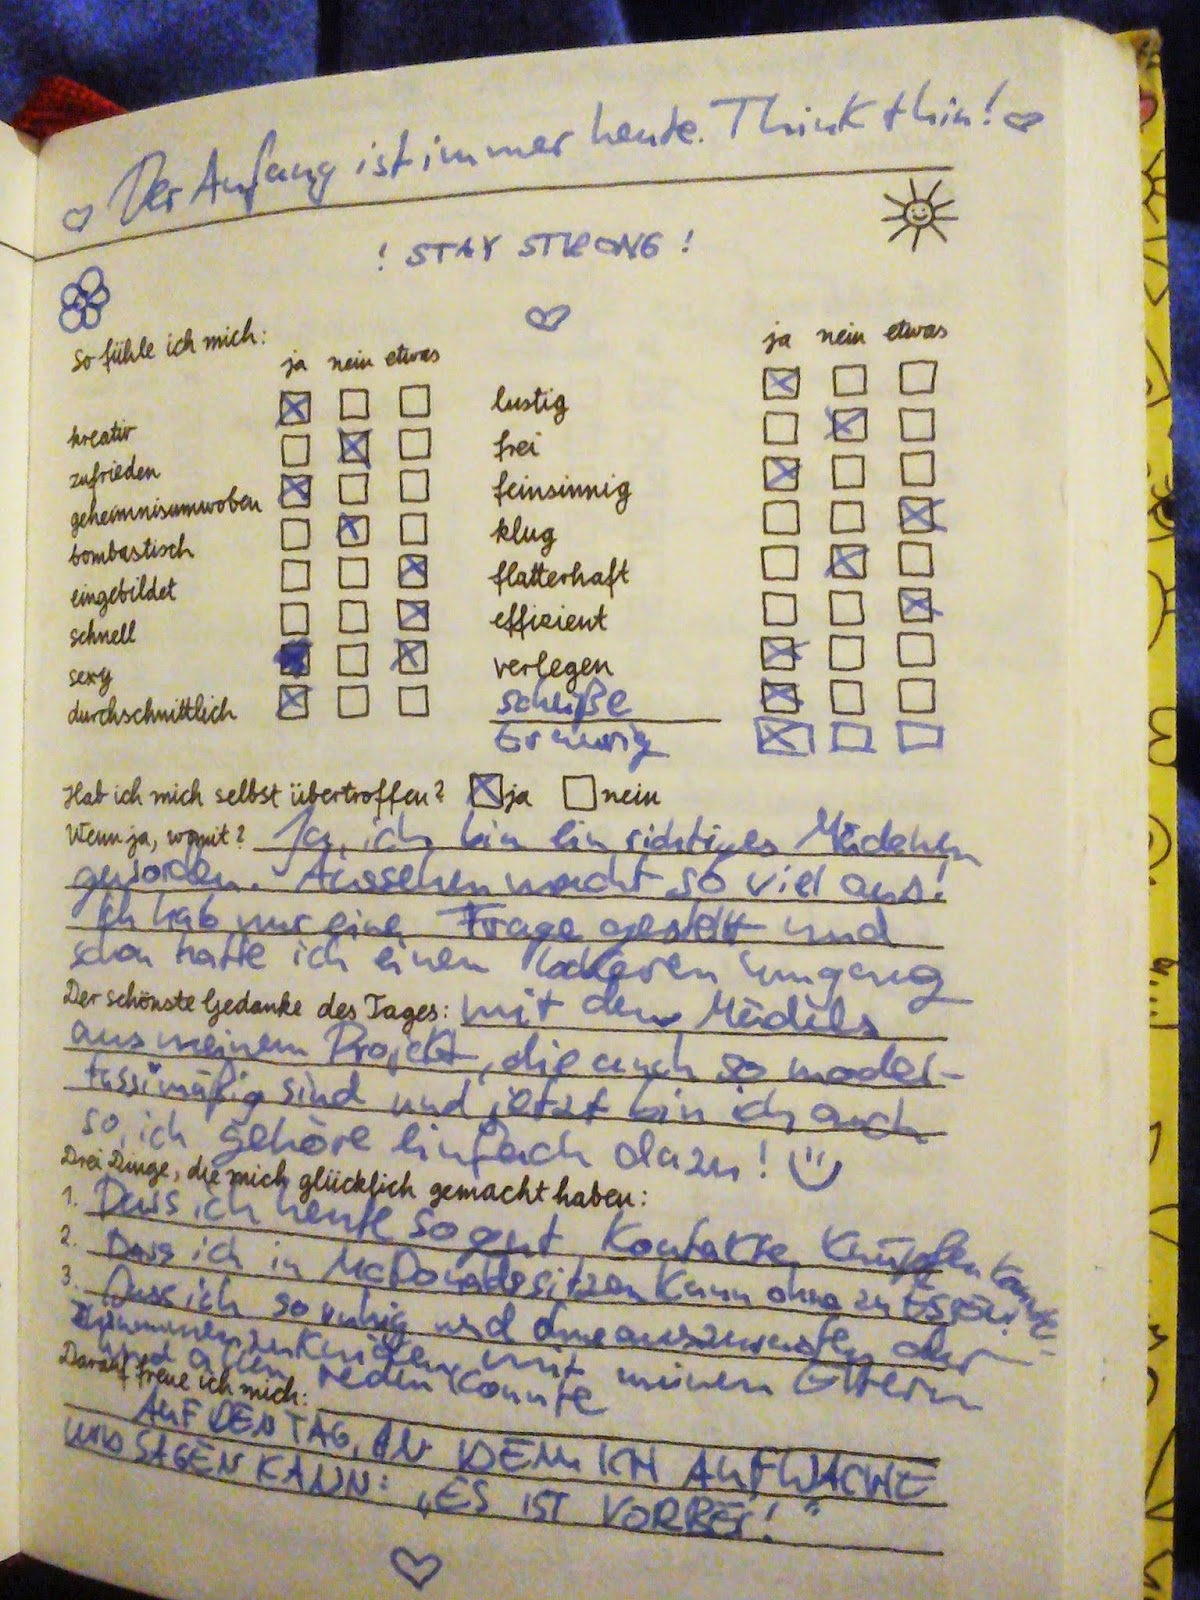 Der Anfang ist immer heute. Think thin!
! STAY STRONG !
So fühle ich mich:
ja nein etwas
kreativ
zufrieden
geheimnisumwoben
bombastisch
eingebildet
schnell
sexy
durchschnittlich
ja nein etwas
lustig
frei
feinsinnig
klug
flatterhaft
effizient
verlegen
scheiße
traurig
Hab ich mich selbst übertroffen? ja nein
Wenn ja, womit? Ja, ich bin ein richtiges Mädchen
geworden. Aussehen macht so viel aus!
Ich hab nur eine Frage gestellt und
schon hatte ich einen lockeren Umgang
Der schönste Gedanke des Tages: mit den Mädels
aus meinem Projekt, die auch so model-
tussimäßig sind und jetzt bin ich auch
so, ich gehöre einfach dazu!
Drei Dinge, die mich glücklich gemacht haben:
1. Dass ich heute so gut Kontakte knüpfen konnte
2. Dass ich in McDonalds sitzen kann ohne zu Essen!
3. Dass ich so ruhig und ohne auszurasten oder
mit meinen Eltern
und allen reden konnte
Darauf freue ich mich:
AUF DEN TAG, AN DEM ICH AUFWACHE
UND SAGEN KANN: „ES IST VORBEI!"